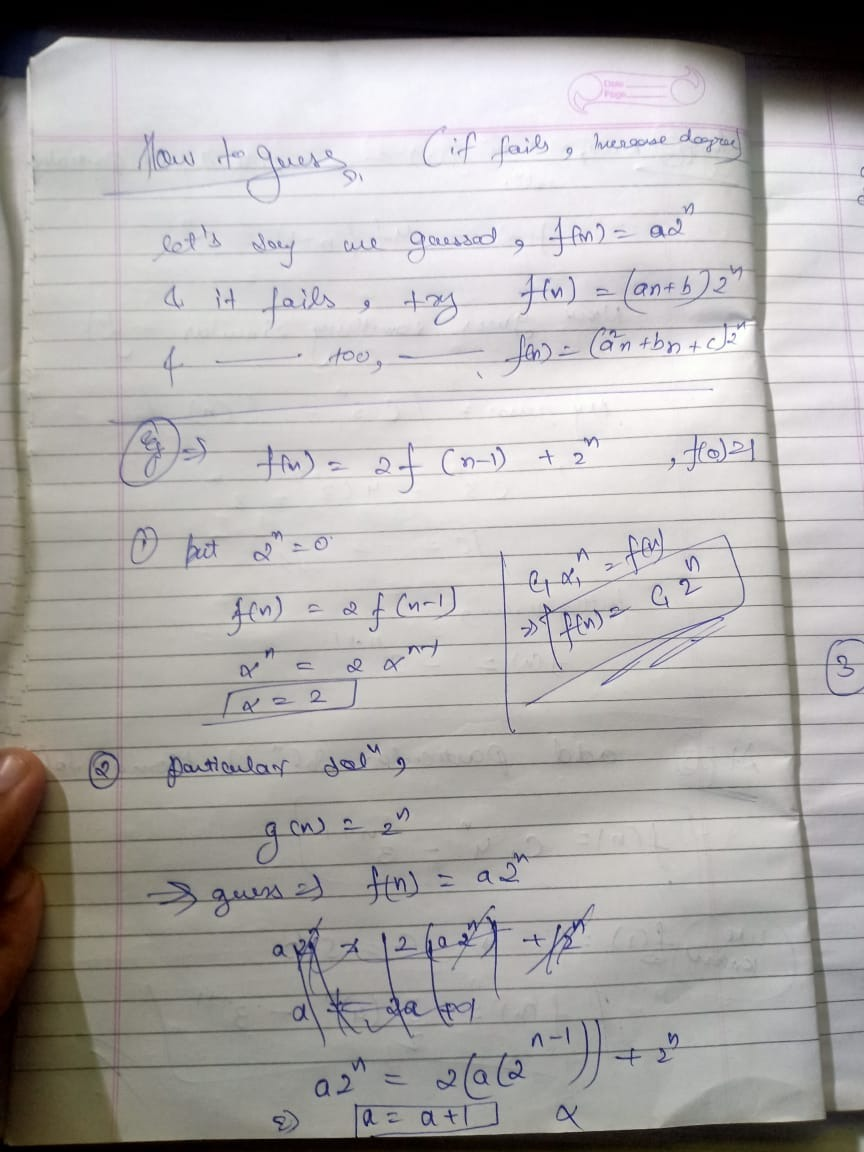 Date
Page
How to guess, (if fails, Increase degree)
let's say we guessed, f(n) = a2ⁿ
& it fails, try f(n) = (an+b)2ⁿ
& —— too, —— f(n) = (a²n + bn + c)2ⁿ
Eg ⇒ f(n) = 2f (n-1) + 2ⁿ , f(0)=1
① put 2ⁿ = 0
f(n) = 2 f (n-1)
αⁿ = 2 αⁿ⁻¹
α = 2
C₁ α₁ⁿ = f(n)
⇒ f(n) = C₁ 2ⁿ
② particular solⁿ,
g(n) = 2ⁿ
→ guess ⇒ f(n) = a2ⁿ
a2ⁿ = 2(a2ⁿ) + 2ⁿ
a = 2a + 1
a2ⁿ = 2(a(2ⁿ⁻¹)) + 2ⁿ
⇒ a = a+1 x
3